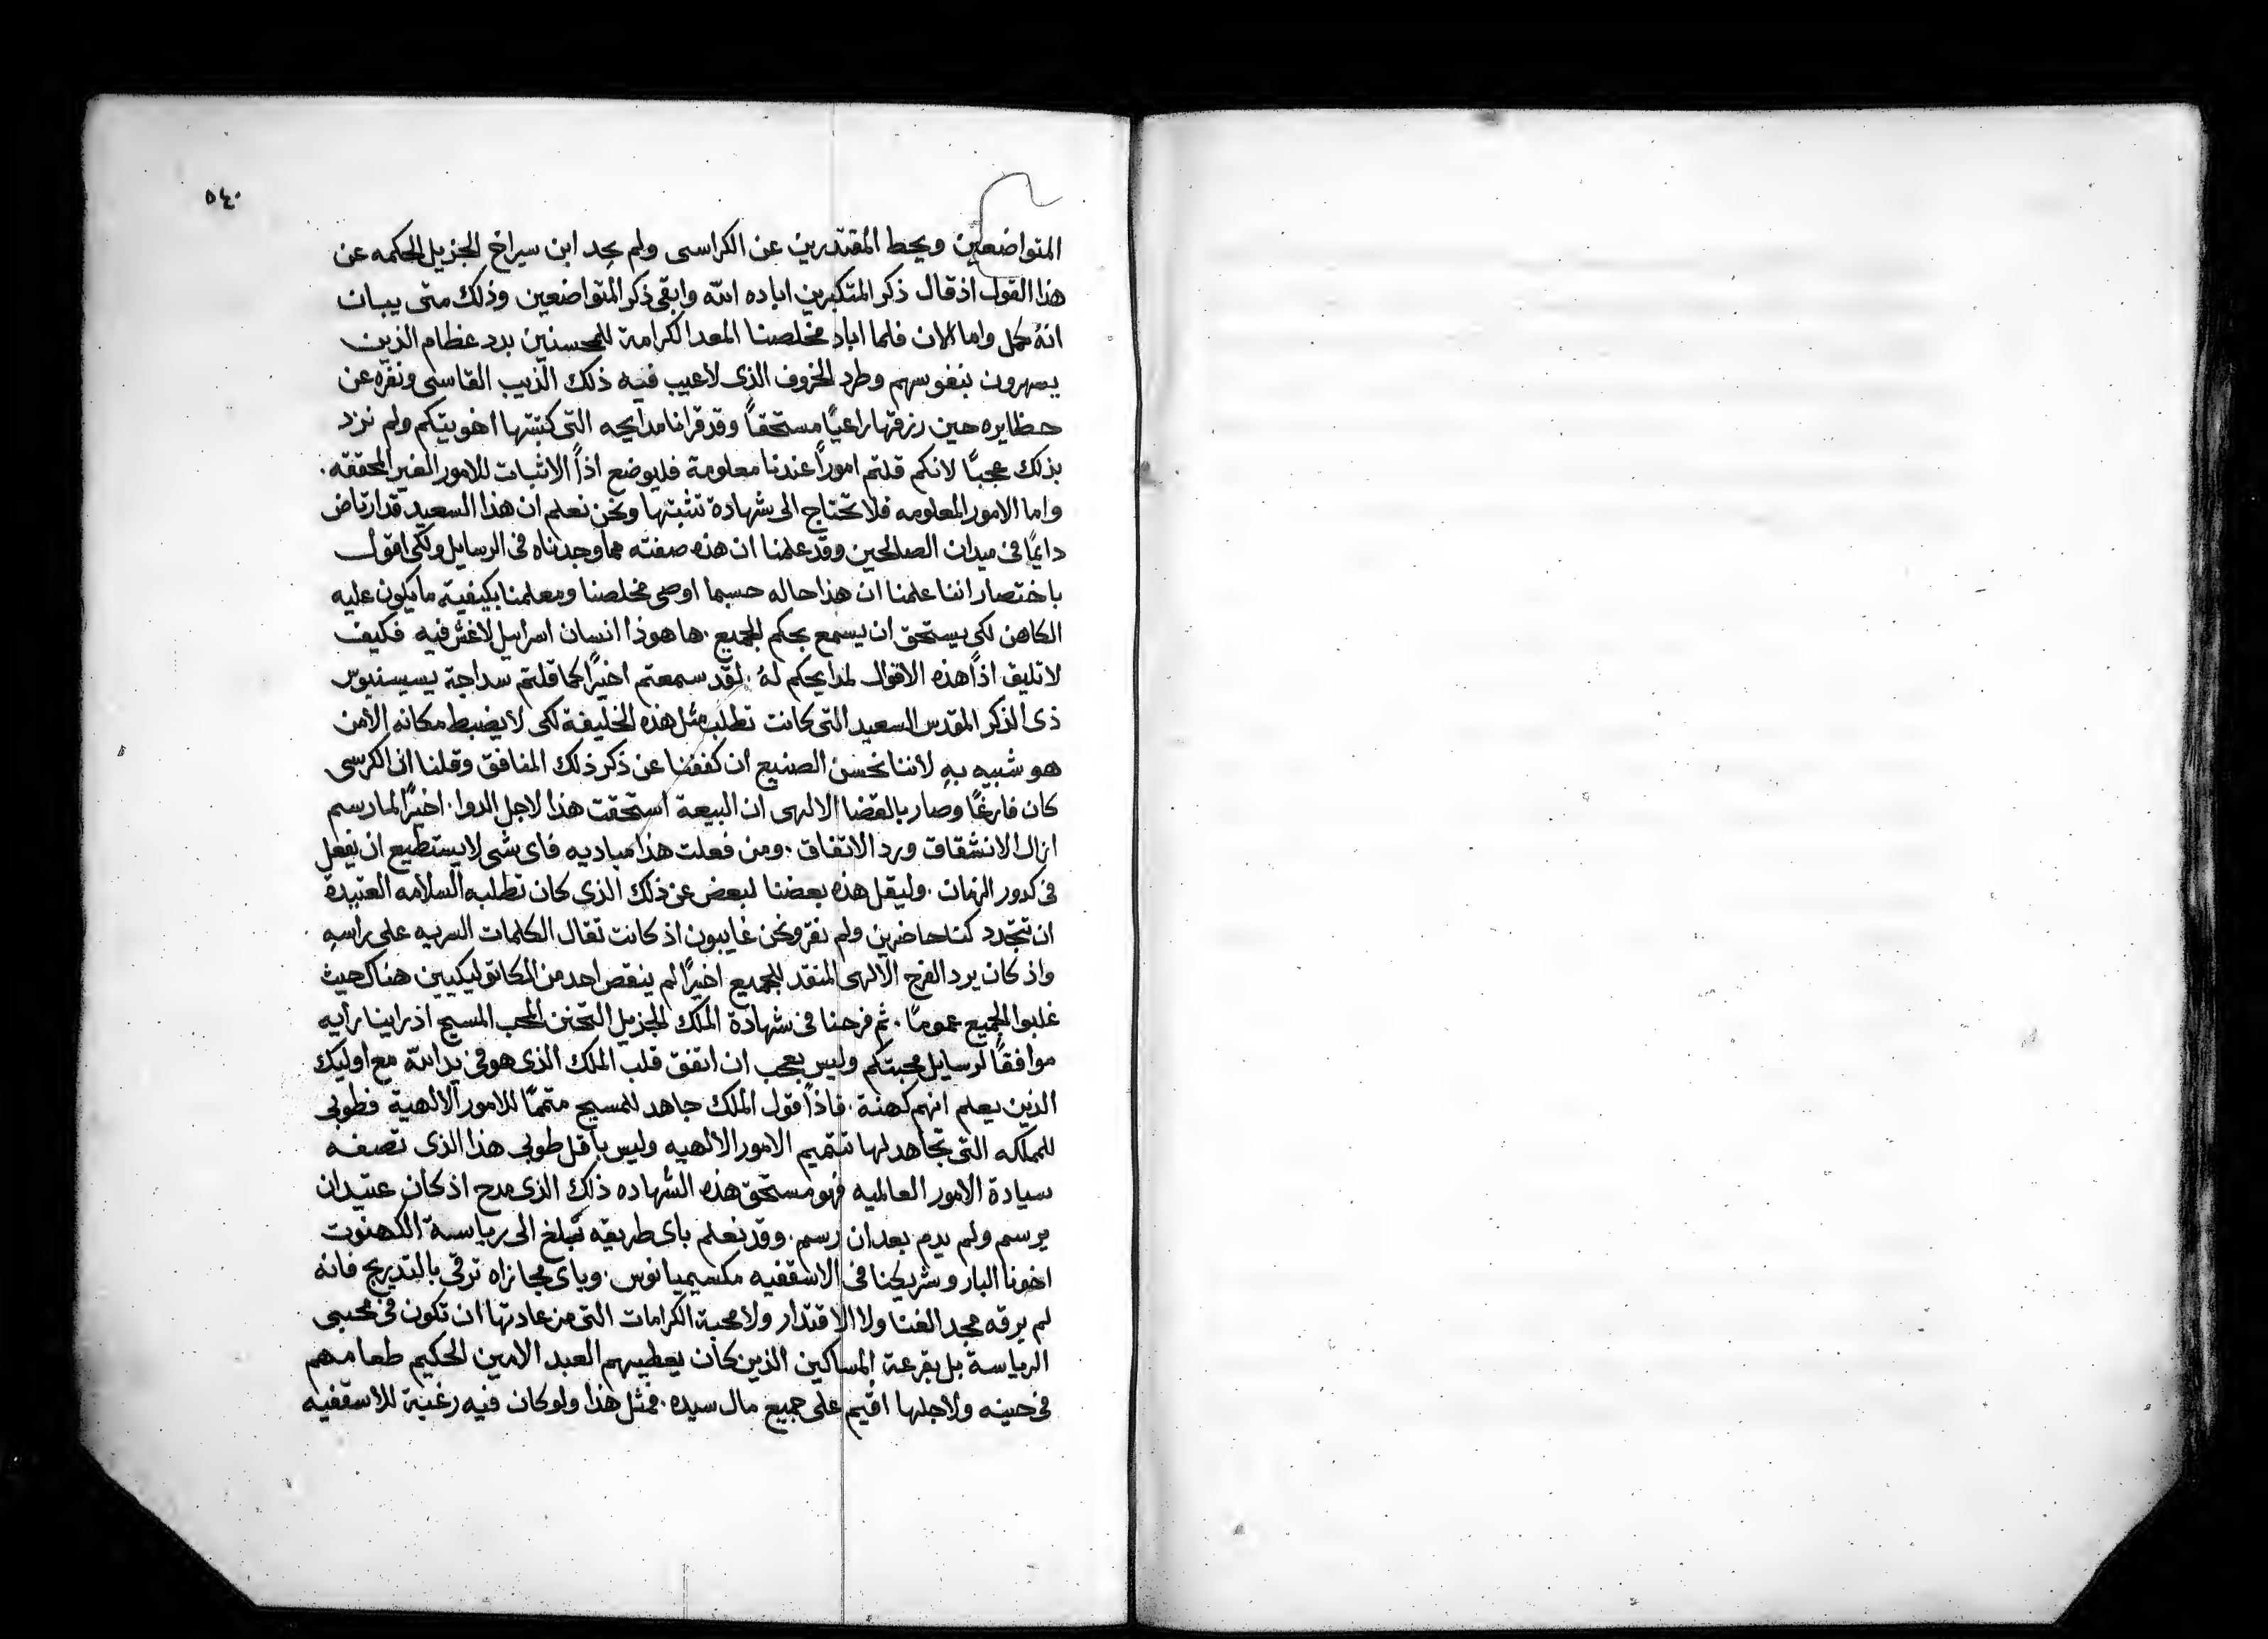 ٥٤٠
المتواضعين ويحط المقتدرين عن الكراسى ولم يحد ابن سيراخ الجزيل الحكمه عن
هذا القول اذ قال ذكر المتكبرين اباده الله وابقى ذكر المتواضعين وذلك متى يبان
انهُ كمل واما الان فلما اباد مخلصنا المعد الكرامة للمحسنين بدد عظام الذين
يسهرون بنفوسهم وطرد الخروف الذى لا عيب فيه ذلك الذيب القاسى ونفره عن
حظايره حين رزقها راعيًا مستحقًا وقد قرانا مدايحه التى كتبتها اخويتكم ولم نزد
بذلك عجبًا لانكم قلتم امورًا عندنا معلومة فليوضع اذًا الاثبات للامور الغير المحققه.
واما الامور المعلومه فلا تحتاج الى شهادة تثبتها ونحن نعلم ان هذا السعيد قد ارتاض
دايمًا فى ميدان الصالحين وقد علمنا ان هذه صفته مما وجدناه فى الرسايل ولكى اقول
باختصار اننا علمنا ان هذا حاله حسبما اوصى مخلصنا ومعلمنا بكيفية ما يكون عليه
الكاهن لكى يستحق ان يسمع بحكم الجميع. ها هوذا انسان اسراييل لا غش فيه فكيف
لا تليق اذًا هذه الاقوال لمدايحكم لهُ. لقد سمعتم اخيرًا كما قلتم سداجة يسيسنيوس
ذى الذكر المقدس السعيد التى كانت تطلب مثل هذه الخليفة لكى لا يضبط مكانه الا من
هو شبيه بهِ لاننا نحسن الصنيع ان كففنا عن ذكر ذلك المنافق وقلنا ان الكرسى
كان فارغًا وصار بالقضا الالهى ان البيعة استحقت هذا لاجل الدوا. اخيرًا لما رسم
ازال الانشقاق ورد الاتفاق. ومن فعلت هذا مباديه فاى شى لا يستطيع ان يفعل
فى كدور الزمان. وليقل هذه بعضنا لبعض عن ذلك الذى كان تطلبه السلامه العتيدة
ان تتجدد كنا حاضرين ولم نفر ونحن غايبون اذ كانت تقال الكلمات السريه على راسهِ
واذ كان يرد الفرج الالهى المنقد للجميع اخيرًا لم ينقص احد من الكاتوليكيين هناك حيث
غلبوا الجميع عمومًا. ثم فرحنا فى شهادة الملك الجزيل التحنن المحب المسيح اذ راينا رأيه
موافقًا لرسايل محبتكم وليس بعجب ان اتفق قلب الملك الذى هو فى يد الله مع اوليك
الذين يعلم انهم كهنة. فاذًا قول الملك جاهد للمسيح متممًا للامور الالهية فطوبى
للمملكه التى تجاهد لها تتميم الامور الالهيه وليس باقل طوبى هذا الذى تصفه
سيادة الامور العالميه فهو مستحق هذه الشهاده ذلك الذى مدح اذ كان عتيد ان
يرسم ولم يدم بعد ان رسم. وقد نعلم باى طريقه تبلغ الى رياسة الكهنوت
اخونا البار وشريكنا فى الاسقفيه مكسيميانوس. وباى مجازاه ترقى بالتدريج فانه
لم يرقه مجد الغنا ولا الاقتدار ولا محبة الكرامات التى من عادتها ان تكون فى محبى
الرياسة بل بقرعة المساكين الذين كان يعطيهم العبد الامين الحكيم طعامهم
فى حينه ولاجلها اقيم على جميع مال سيده. فمثل هذا ولو كان فيه رغبة للاسقفيه